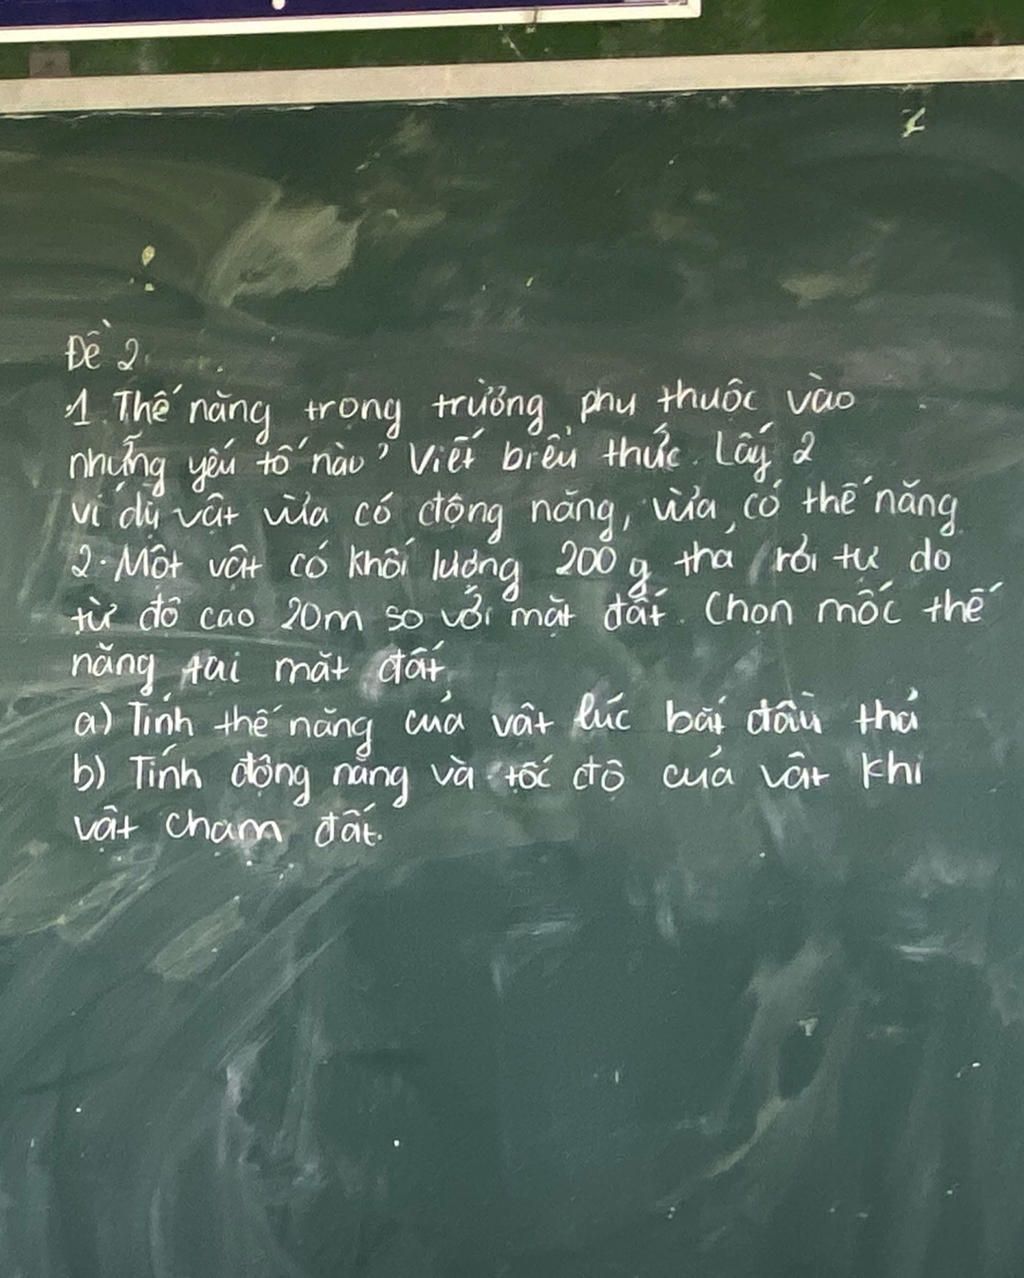 Đề 2.
1. Thế năng trọng trường phụ thuộc vào
những yếu tố nào? Viết biểu thức. Lấy 2
ví dụ vật vừa có động năng, vừa có thế năng
2. Một vật có khối lượng 200 g thả rơi tự do
từ độ cao 20m so với mặt đất. Chọn mốc thế
năng tại mặt đất
a) Tính thế năng của vật lúc bắt đầu thả
b) Tính động năng và tốc độ của vật khi
vật chạm đất.